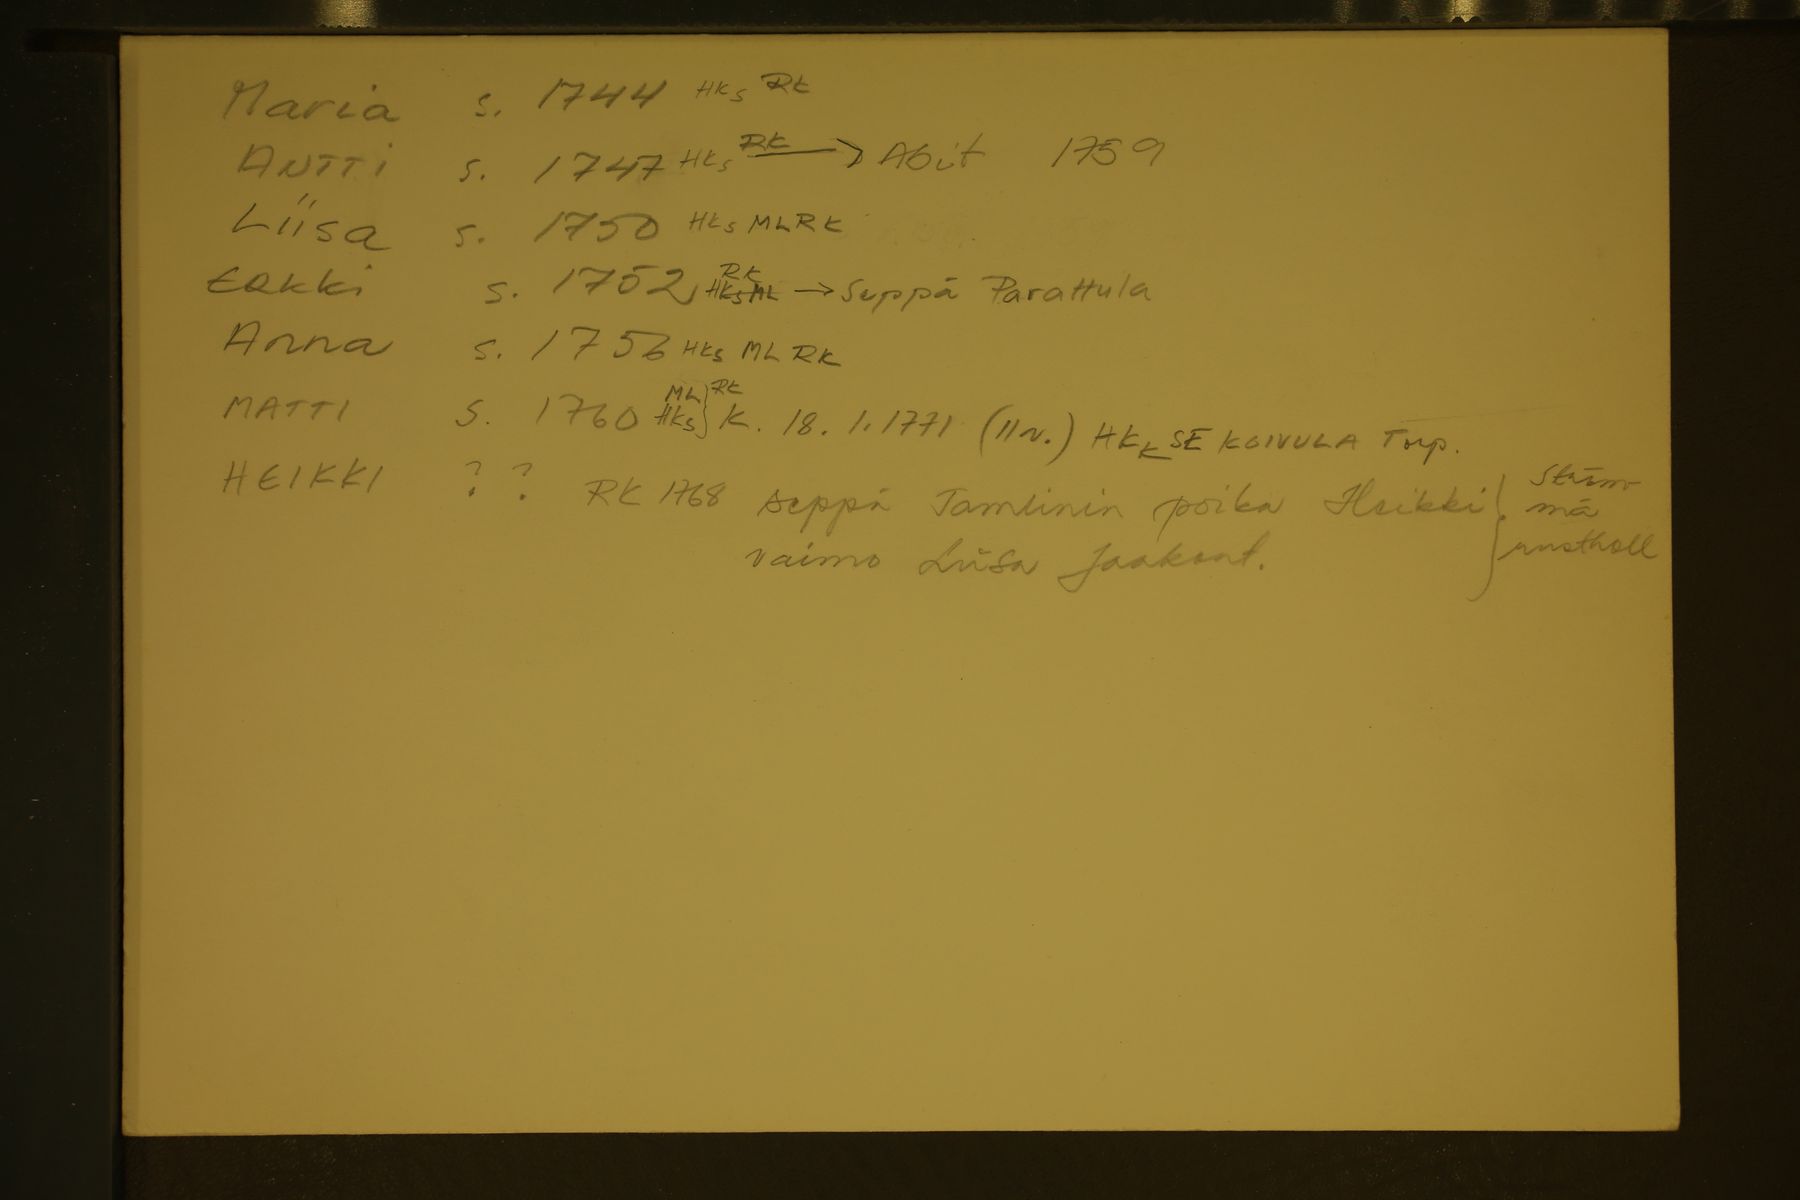 Maria s. 1744 HKs RK
ANTTI s. 1747 HKs RK → Abit 1759
Liisa s. 1750 HKs ML RK
ERkki s. 1752 RK HKs ML → Seppä Parattula
Anna s. 1756 HKs ML RK
MATTI s. 1760 ML HKs } RK K. 18. 1. 1771 (11 v.) HKK SE KOIVULA Torp.
HEIKKI ? ? RK 1768 seppä Tamlinin poika Heikki }
vaimo Liisa Jaakont.
mä
rustholl